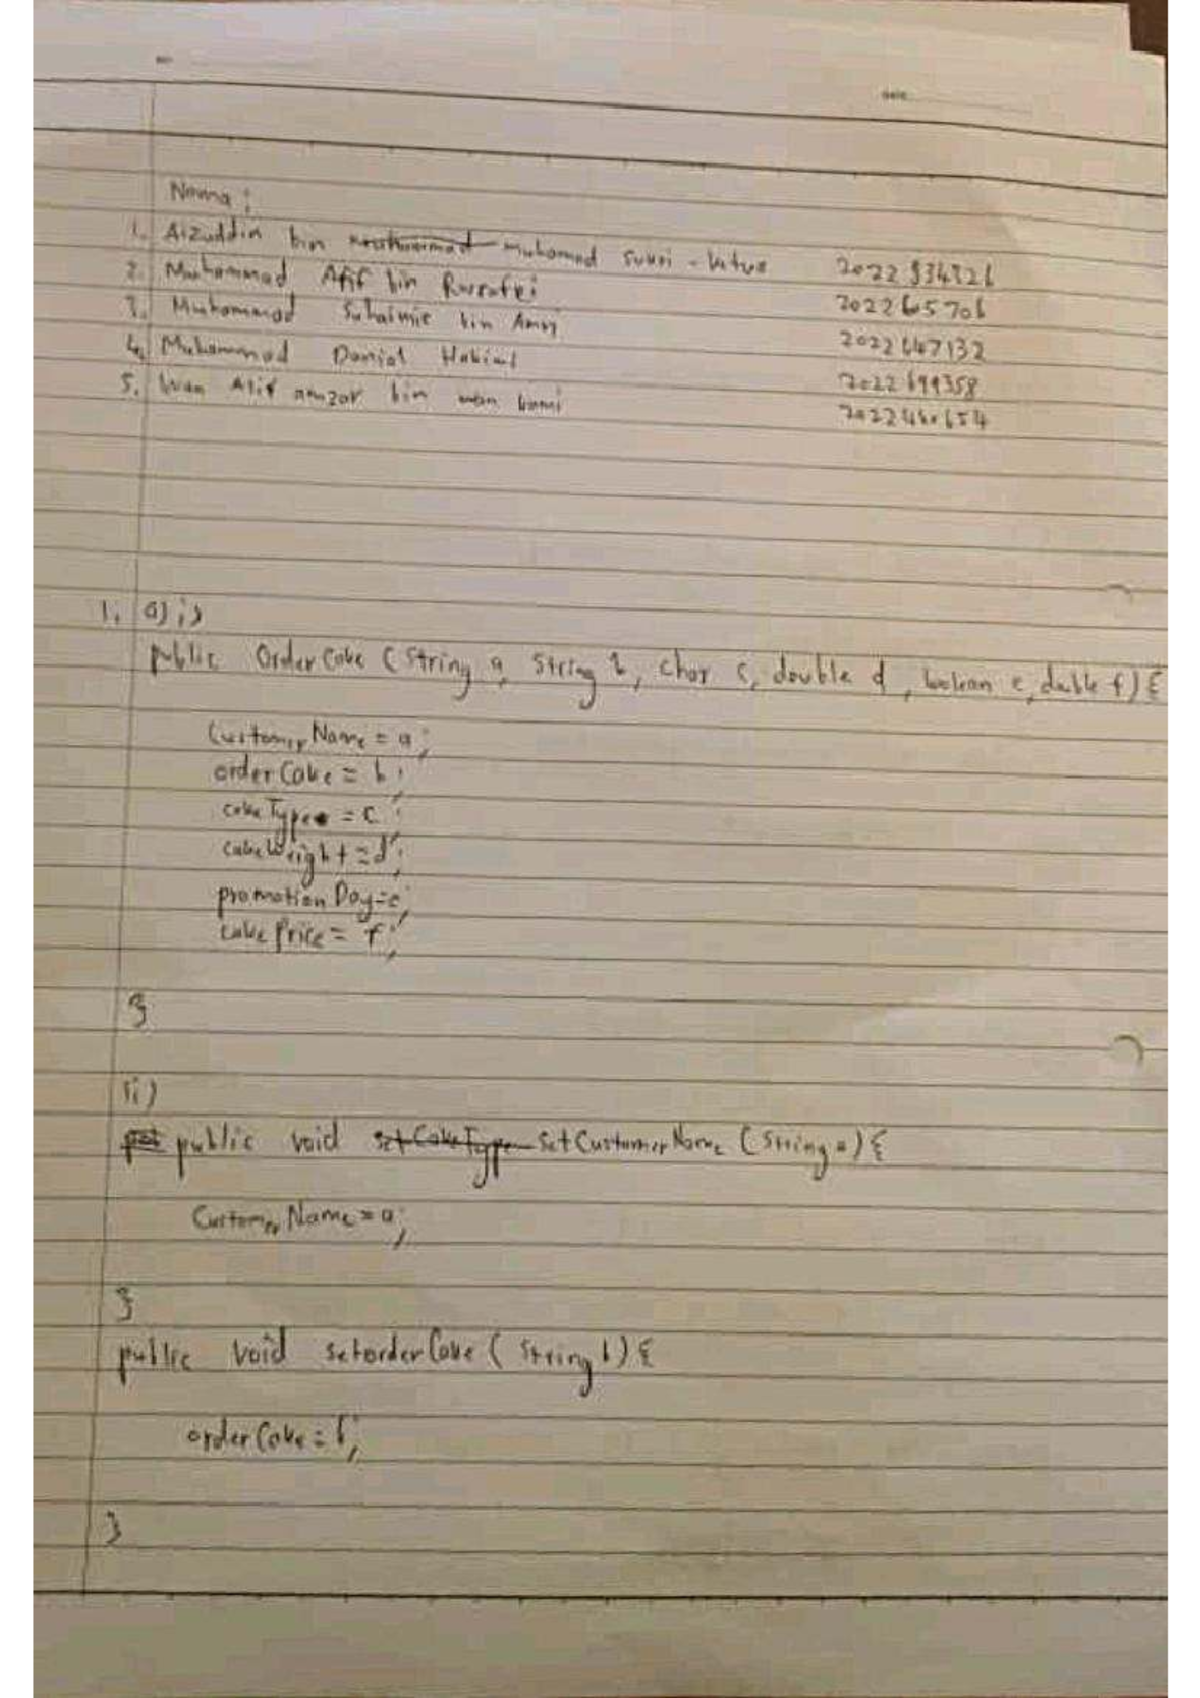 Nama :
1. Aizuddin bin muhamad Sukri - ketua 2022834326
2. Muhammad Afif bin 2022605706
3. Muhammad Suhaimie bin Amri 2022647132
4. Muhammad Danial Hakimi 2022699358
5. Wan Alif amzar bin wan 2022460654
1. a) i)
public OrderCake (String a, String b, char c, double d, boolean e, double f) {
CustomerName = a;
orderCake = b;
cakeType = c;
cakeWeight = d;
promotionDay = e;
cakePrice = f;
}
ii)
public void setCakeType SetCustomerName (String a) {
CustomerName = a;
}
public void setorderCake ( String b) {
orderCake = b;
}